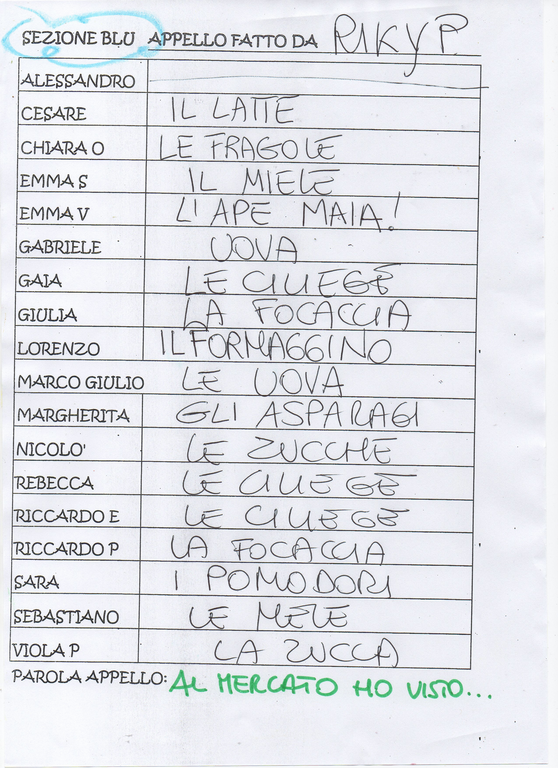 SEZIONE BLU APPELLO FATTO DA RIKY P.
ALESSANDRO
CESARE IL LATTE
CHIARA O LE FRAGOLE
EMMA S IL MIELE
EMMA V L'APE MAIA!
GABRIELE UOVA
GAIA LE CILIEGE
GIULIA LA FOCACCIA
LORENZO IL FORMAGGINO
MARCO GIULIO LE UOVA
MARGHERITA GLI ASPARAGI
NICOLO' LE ZUCCHE
REBECCA LE CILIEGE
RICCARDO E LE CILIEGE
RICCARDO P LA FOCACCIA
SARA I POMODORI
SEBASTIANO LE MELE
VIOLA P LA ZUCCA
PAROLA APPELLO: AL MERCATO HO VISTO...